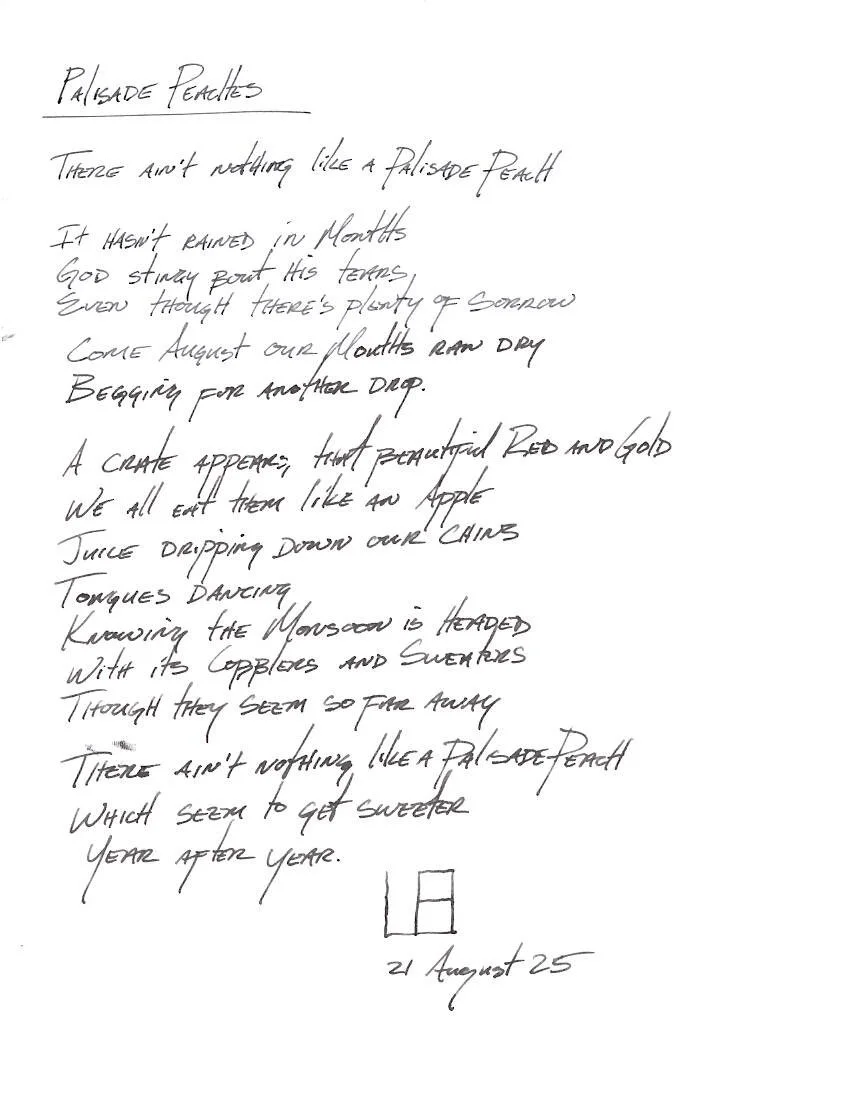 Palisade Peaches
There ain't nothing like a Palisade Peach
It hasn't rained in Months
God stingy bout His tears,
Even though there's plenty of sorrow
Come August our Mouths raw dry
Begging for another drop.
A crate appears, that beautiful Red and Gold
We all eat them like an Apple
Juice dripping down our chins
Tongues dancing
Knowing the Monsoon is Headed
With its Cobblers and Sweaters
Though they seem so far away
There ain't nothing like a Palisade Peach
Which seem to get sweeter
Year after year.
21 August 25